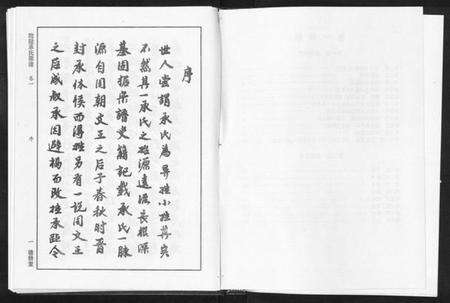 序
世人尝谓承氏为异姓小族其实
不然其一承氏之姓源远流长根深
基固据宗谱史籍记载承氏一脉
源自周朝文王之后于春秋时晋
封承休侯而得姓另有一说周文王
之后成叔承因避祸而改姓承距今
卷一
序
一